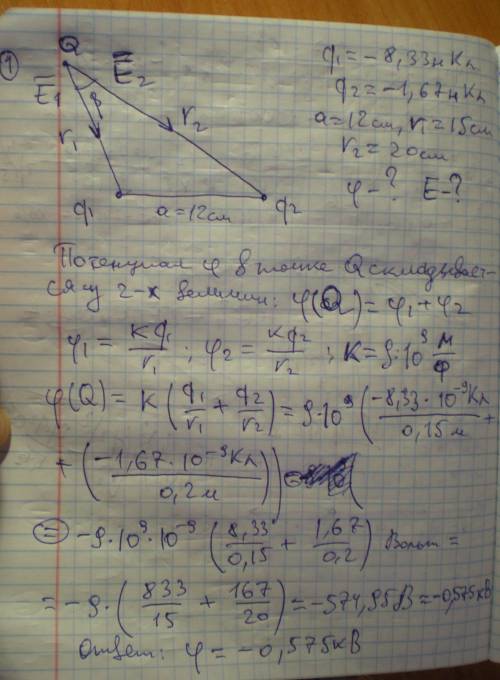 1
Q
q₁ = -8,33нКл
E⃗₁ β E⃗₂
q₂ = -1,67нКл
r₁ r₂
a = 12см, r₁ = 15см
r₂ = 20см
q₁ a = 12см q₂
φ - ? E - ?
Потенциал φ в точке Q складывает-
ся из 2-х величин: φ(Q) = φ₁ + φ₂
φ₁ = kq₁/r₁ ; φ₂ = kq₂/r₂ ; K = 9·10⁹ м/Ф
φ(Q) = K (q₁/r₁ + q₂/r₂) = 9·10⁹ (-8,33·10⁻⁹Кл/0,15м +
+ (-1,67·10⁻⁹Кл/0,2м)) =
= -9·10⁹·10⁻⁹ (8,33/0,15 + 1,67/0,2) Вольт =
= -9·(833/15 + 167/20) = -574,95В = -0,575кВ
Ответ: φ = -0,575кВ